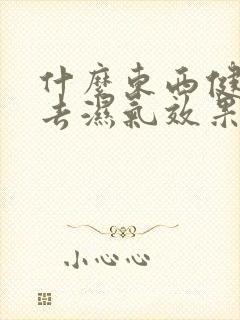 什麼東西健
去濕氣效果
小心心